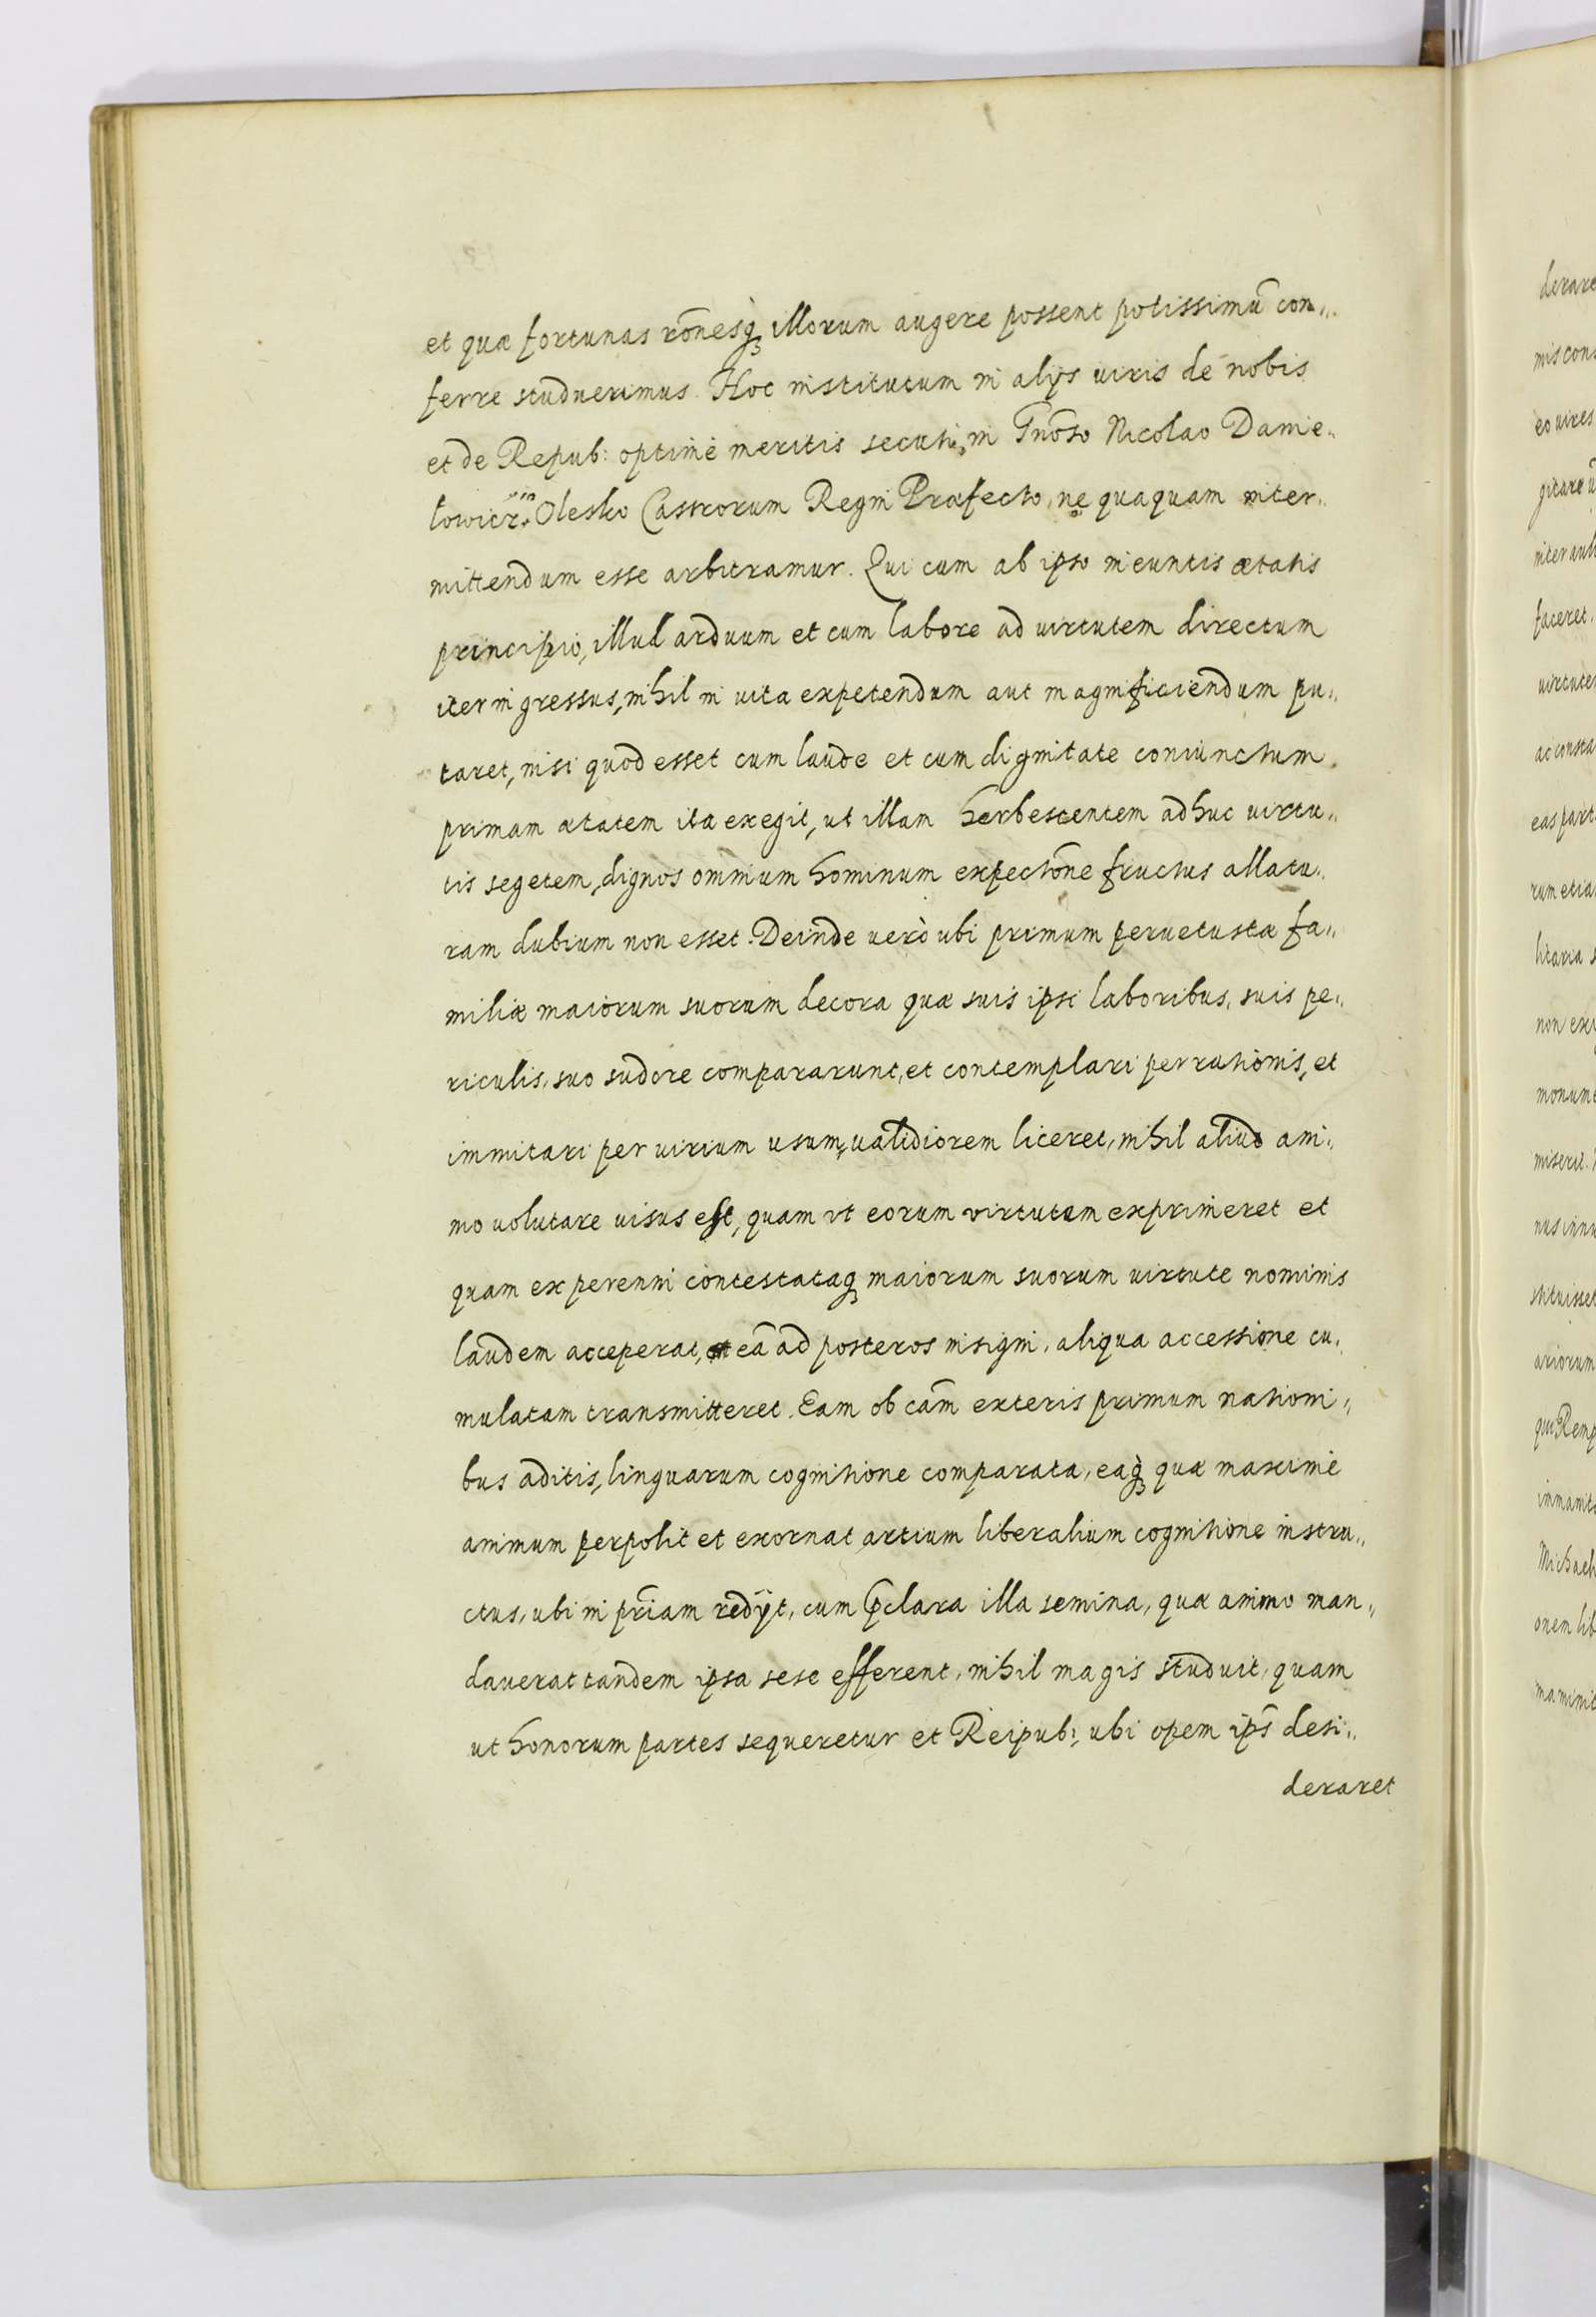 et quæ fortunas rõnesq̃ illorum augere possent potissimũ con„
ferre studuerimus. Hoc institutum in alijs uiris de nobis
et de Repub: optimè meritis secuti, in Gnõso Nicolao Danie„
lowicz in Olesko Castrorum Regni Præfecto, ne quaquam inter„
mittendum esse arbitramur. Qui cum ab ipso ineuntis ætatis
principio, illud arduum et cum labore ad uirtutem directum
iter ingressus, nihil in uita expetendum aut magnificiendum pu„
taret, nisi quod esset cum laude et cum dignitate coniunctum.
primam ætatem ita exegit, ut illam herbescentem adhuc uirtu„
tis segetem, dignos omnium hominum expectõne fructus allatu„
ram dubium non esset. Deinde uerò ubi primum peruetustæ fa„
miliæ maiorum suorum decora quæ suis ipsi laboribus, suis pe„
riculis, suo sudore compararunt, et contemplari per rationis, et
immitari per uirium usum, ualidiorem liceret, nihil aliud ani„
mo uolutare uisus est, quam vt eorum virtutem exprimeret et
quam ex perenni contestataq̃ maiorum suorum uirtute nominis
laudem acceperat, eã ad posteros insigni, aliqua accessione cu„
mulatam transmitteret. Eam ob cãm exteris primum nationi„
bus aditis, linguarum cognitione comparata, eaq̃ quæ maximè
animum perpolit et exornat artium liberalium cognitione instru„
ctus, ubi in pr̃iam redijt, cum p̃clara illa semina, quæ animo man„
dauerat tandem ipsa sese efferent, nihil magis studuit, quam
ut honorum partes sequeretur et Reipub:, ubi opem ips̃ desi„
deraret